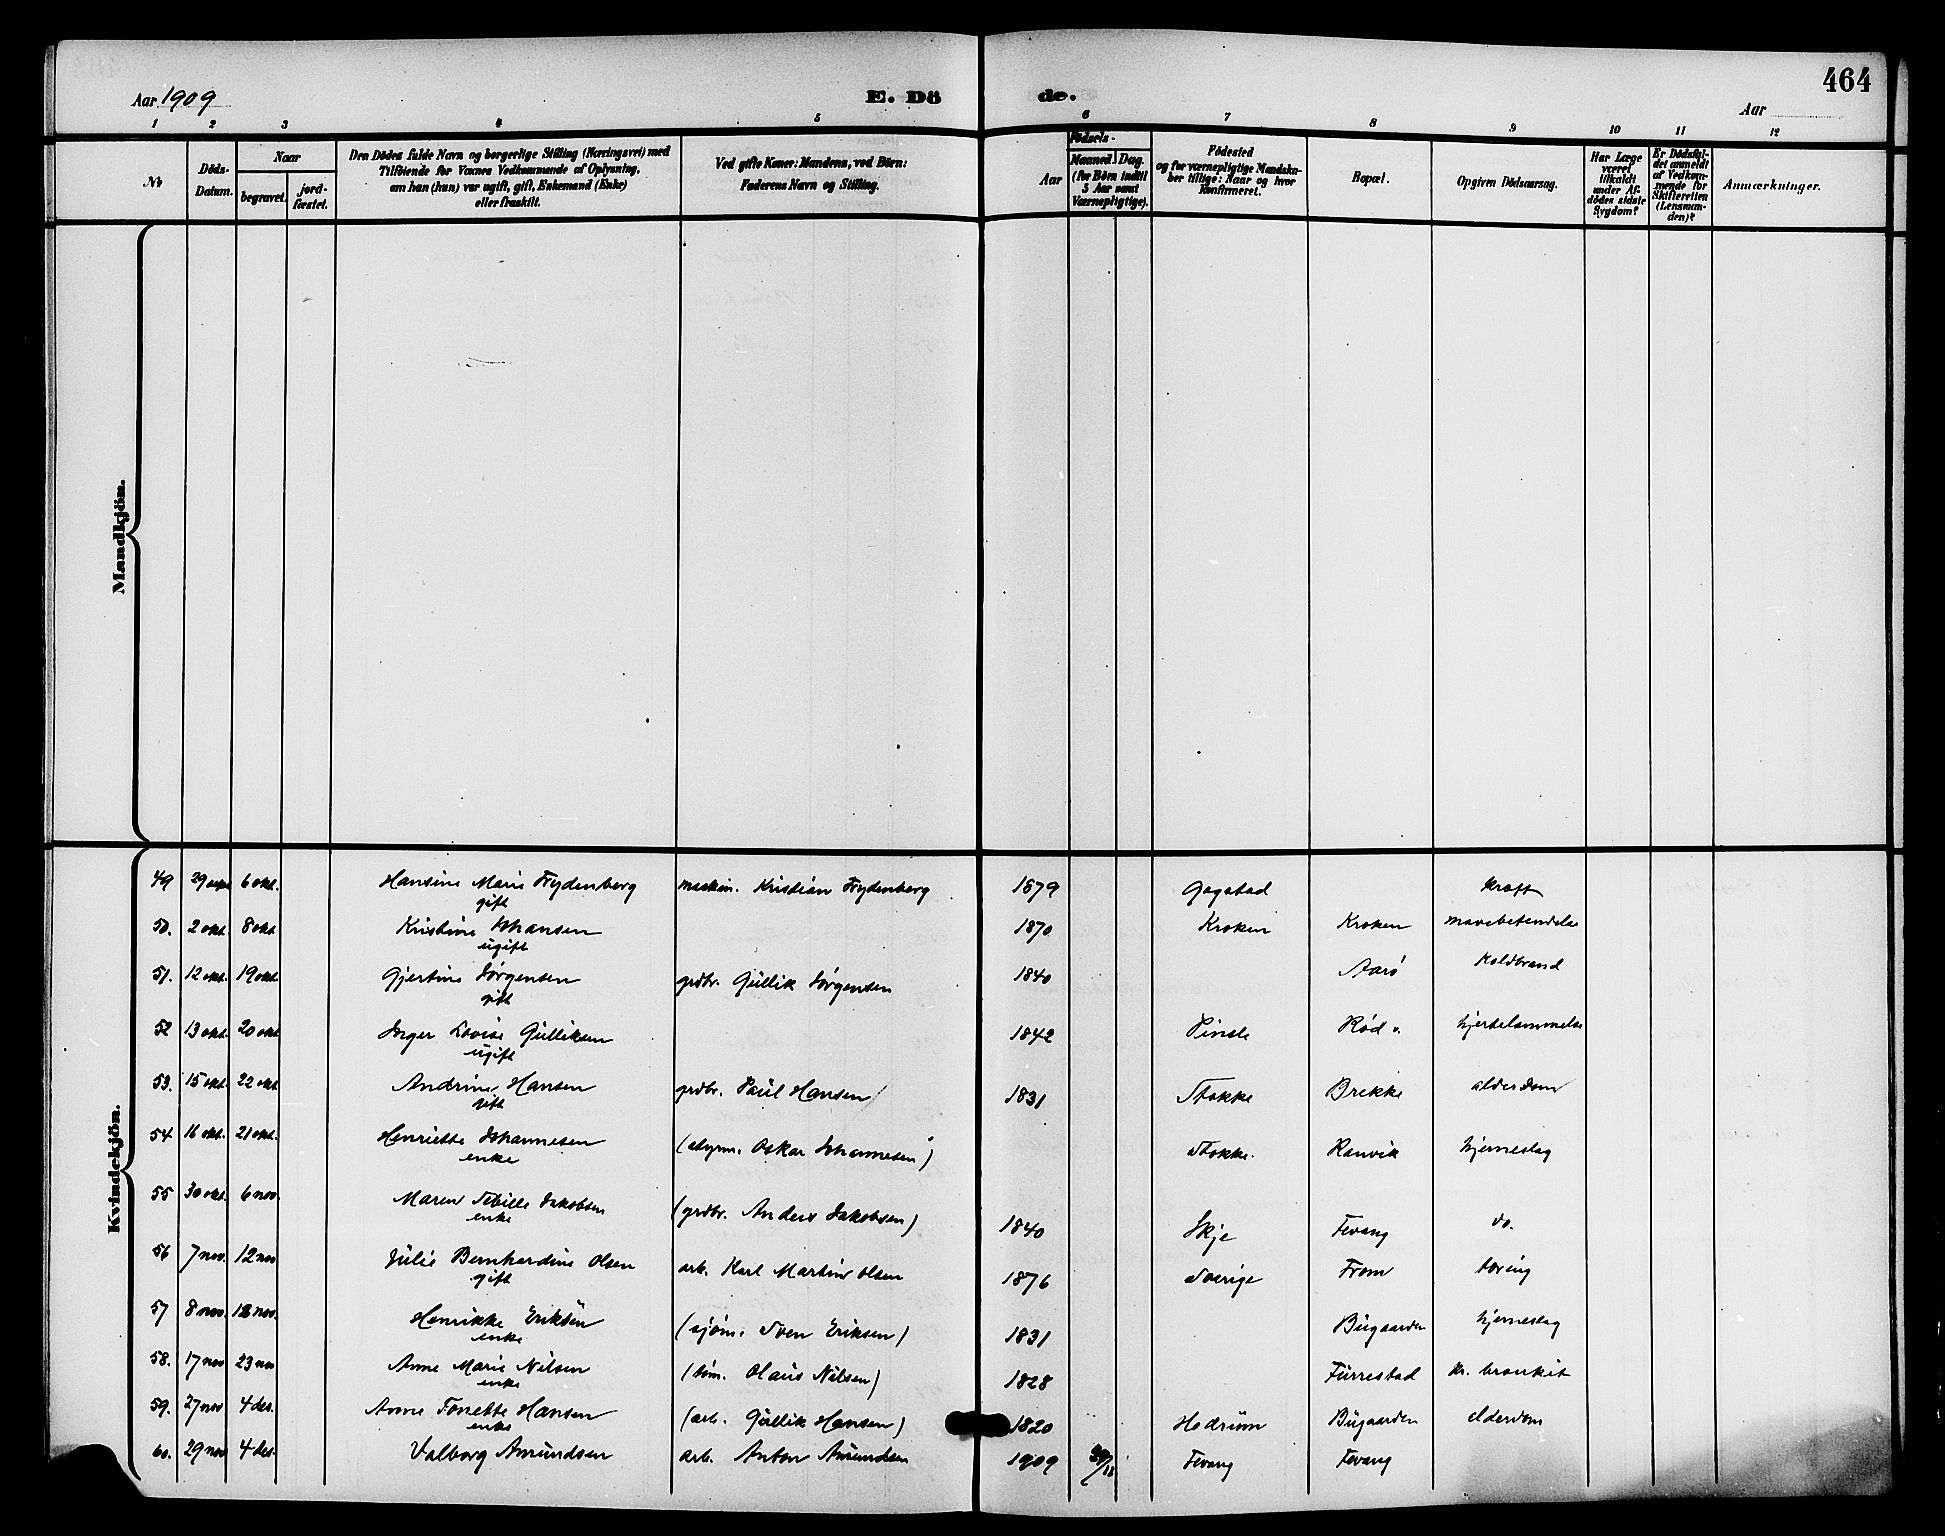 464
Aar 1909
E. Dö de.
Aar
1 2 3 4 5 6 7 8 9 10 11 12
No
Döds-Datum.
Naar
begravet.
jord-fæstet.
Den Dödes fulde Navn og borgerlige Stilling (Næringsvei) med
Tilföiende for Voxnes Vedkommende af Oplysning,
om han (hun) var ugift, gift, Enkemand (Enke)
eller fraskilt.
Ved gifte Koner: Mandens, ved Börn:
Faderens Navn og Stilling.
Födsels-
Aar
Maaned. Dag.
(for Börn indtil
5 Aar samt
Værnepligtige).
Födested
og for værnepligtige Mandska-
ber tillige: Naar og hvor
Konfirmeret.
Bopæl.
Opgiven Dödsaarsag.
Har Læge
været
tilkaldt
under Af-
dödes sidste
Sygdom?
Er Dödsfal-
det anmeldt
af Vedkom-
mende for
Skifteretten
(Lensman-
den)?
Anmærkninger.
Mandkjön.
Kvindekjön.
49 29 sept 6 okt. Hansine Marie Frydenberg maskin. Kristian Frydenberg 1879 Gogstad kræft
gift
50. 2 okt. 8 okt Kristine Johansen 1870 Kroken Kroken mavebetendelse
ugift
51. 12 okt. 19 okt Gjertine Jørgensen grdbr. Gullik Jørgensen 1840 Aarø Koldbrand
gift
52 13 okt. 20 okt Inger Lovise Gulliksen 1842 Pindsle Rød v. hjertelammelse
ugift
53. 15 okt. 22 okt Andrine Hansen grdbr. Paul Hansen 1831 Stokke Brekke alderdom
gift
54 16 okt. 21 okt. Henriette Johannesen (styrm. Oskar Johannesen) Stokke. Ranvik hjerneslag
enke
55 30 okt. 6 nov. Maren Sibille Jakobsen (grdbr. Anders Jakobsen) 1840 Skje Fevang do.
enke
56 7 nov. 12 nov Julie Bernhardine Olsen arb. Karl Martin Olsen 1876 Sverige From tæring
gift
57 8 nov. 12 nov. Henrikke Eriksen (sjøm. Sven Eriksen) 1831 Bugaarden hjerneslag
enke
58. 17 nov 23 nov Anne Marie Nilsen (tøm. Olaus Nilsen) 1828 Furrestad kr. bronkit
enke
59. 27 nov 4 des. Anne Tonette Hansen (arb. Gullik Hansen) 1820 Hedrum Bugaarden alderdom
enke
60. 29 nov 4 des. Valborg Amundsen arb. Anton Amundsen 1909 Fevang Fevang